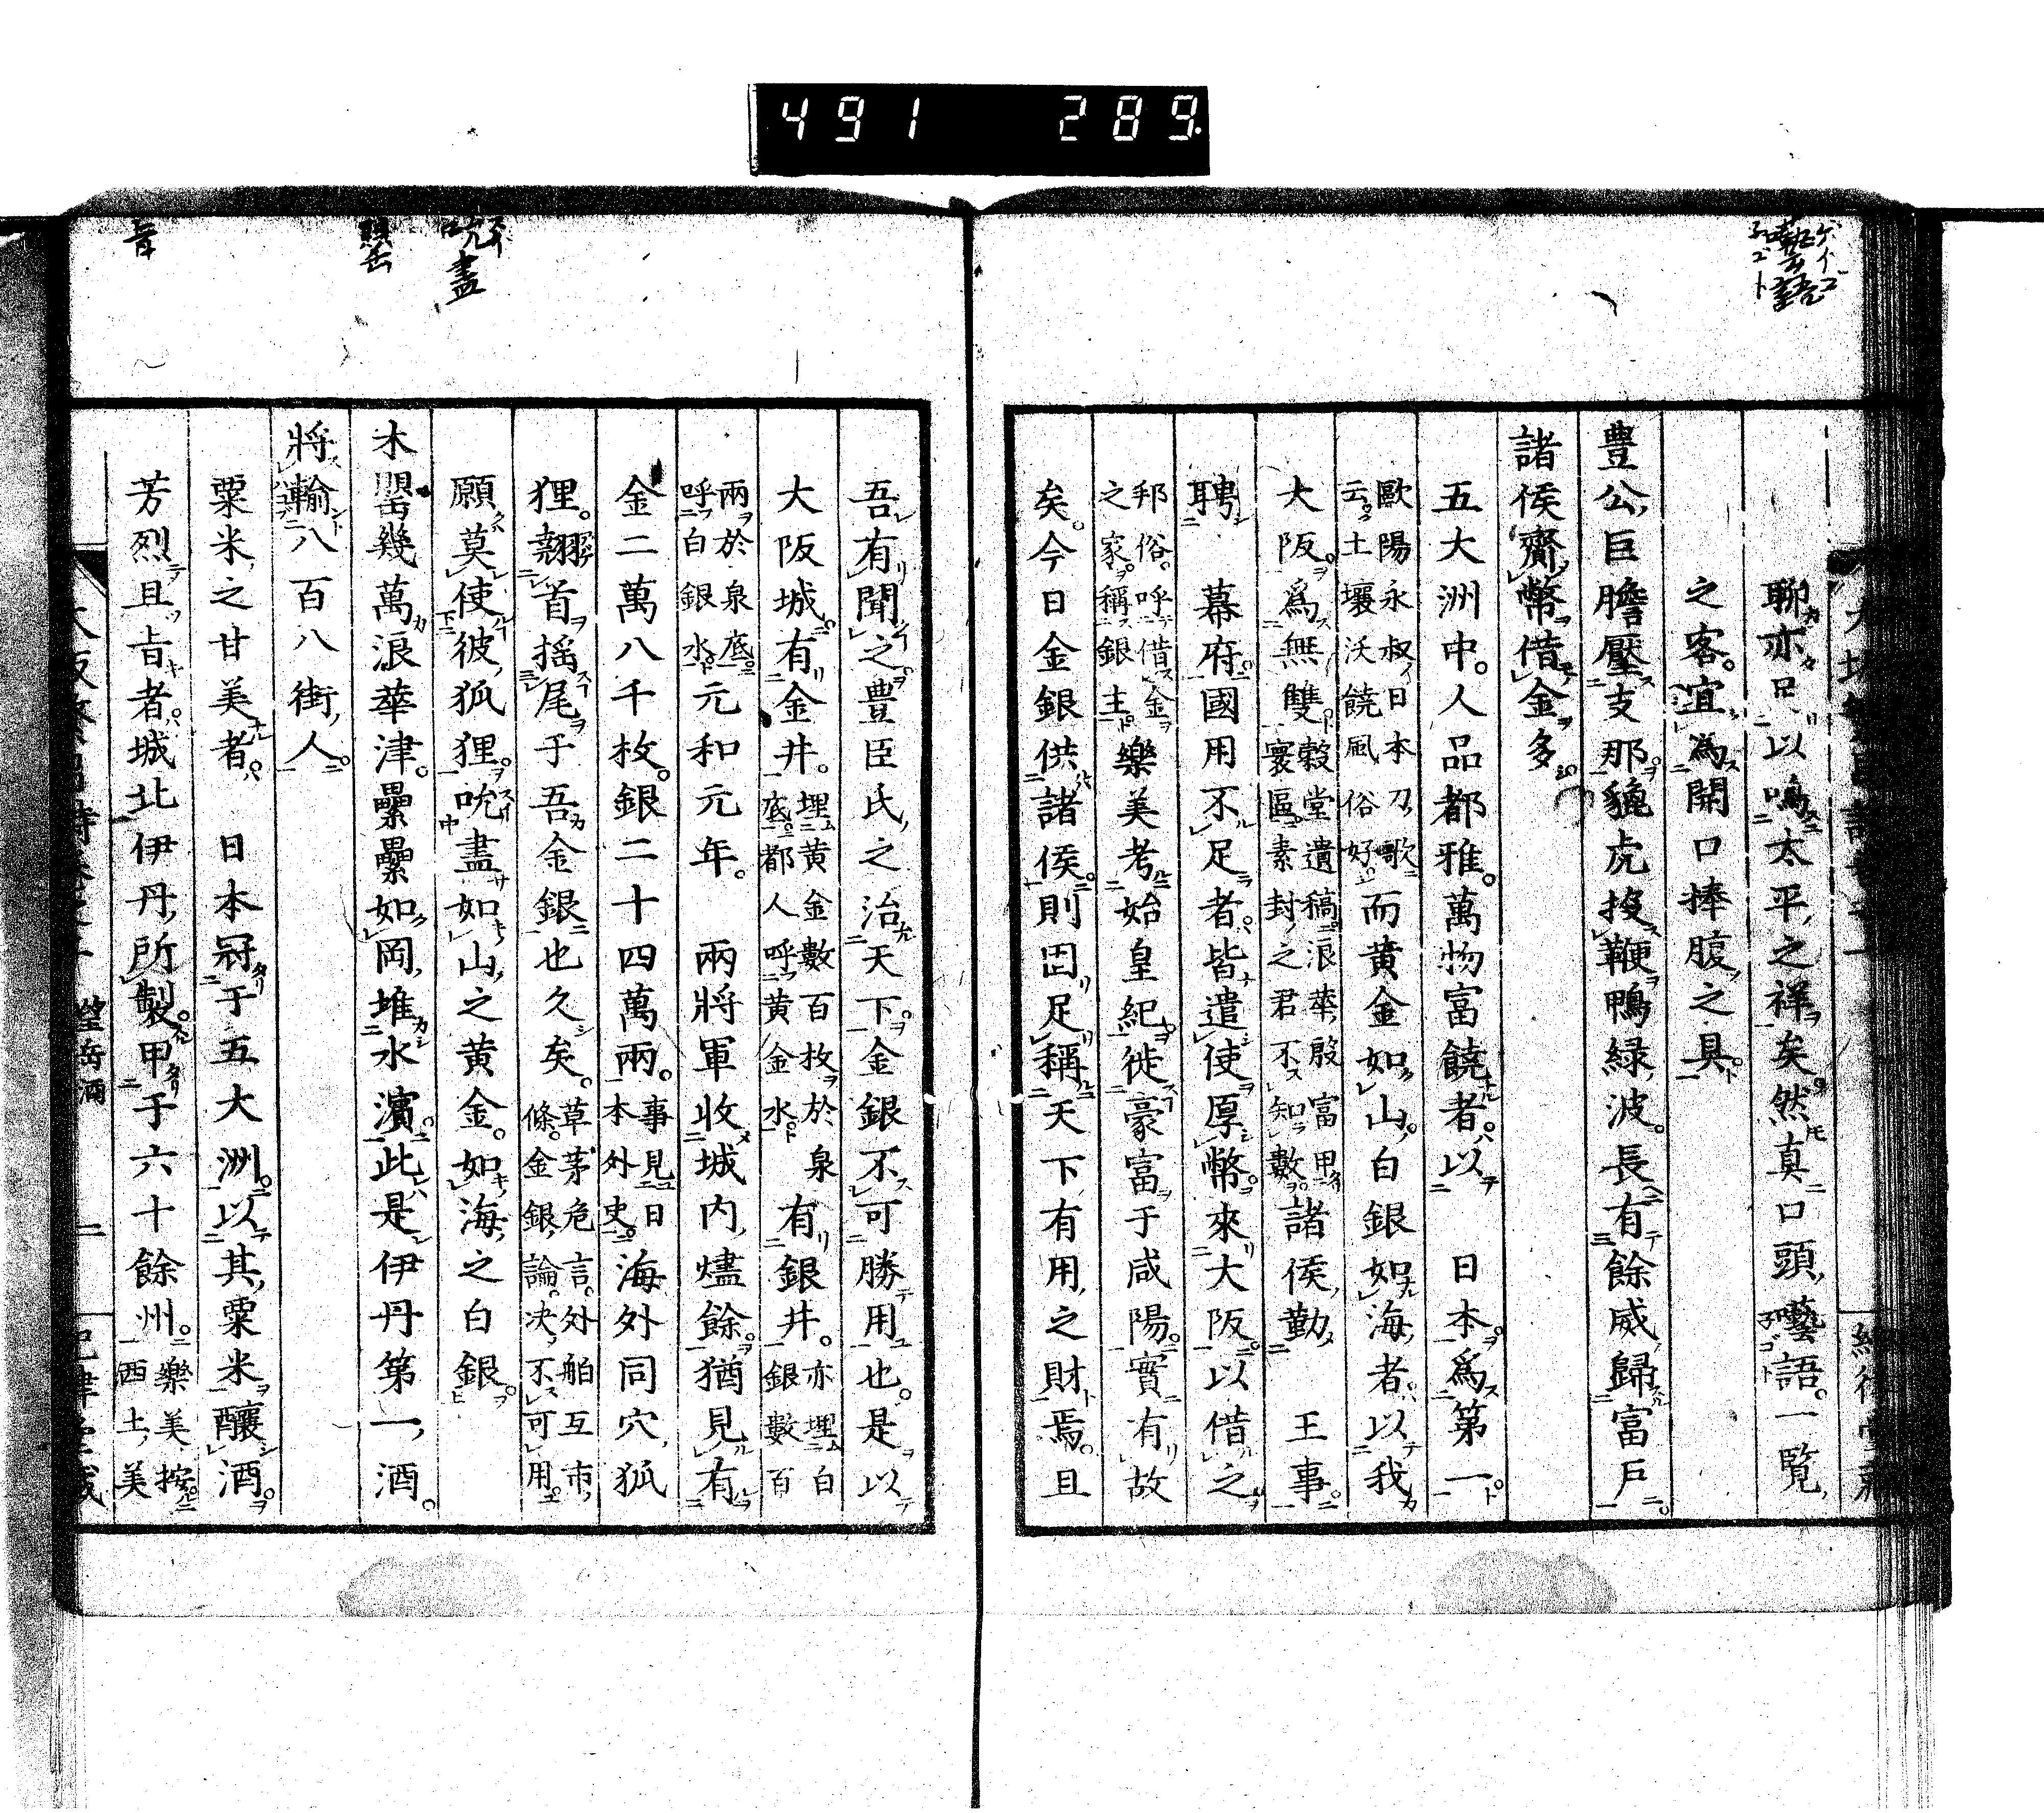 491 289
囈語
ゲイゴ
ネゴト
聊亦只以鳴太平之祥矣然真口頭囈語。一覧
之客。宜爲開口捧腹之具。
豊公巨膽壓支那。貔虎投鞭鴨緑波。長有餘威歸富戸。
諸侯齎幣借金多
五大洲中。人品都雅。萬物富饒者。以　日本。爲第一。
歐陽永叔日本刀歌云。土壤沃饒風俗好。而黄金如山。白銀如海者。以我
大阪。爲無雙。穀堂遺稿浪華殷富甲寰區。素封之君不知數。諸侯勤　王事。
聘　幕府。國用不足者。皆遣使厚幣。來大阪。以借之
邦俗。呼借金之家。稱銀主。樂美考始皇紀。徙豪富于咸陽。實有故
矣。今日金銀供諸侯。則固足稱天下有用之財焉。且
吾有聞之。豊臣氏之治天下。金銀不可勝用也。是以
大阪城。有金井。埋黄金數百枚於泉底。都人呼黄金水。有銀井。亦埋白銀數百
兩於泉底。呼白銀水。元和元年。　兩將軍收城内燼餘。猶見有
金二萬八千枚。銀二十四萬兩。事見日本外史。海外同穴狐
狸。翹首搖尾于吾金銀也久矣。草茅危言。外舶互市條。金銀論。决不可用。
願莫使彼狐狸。吮盡如山之黄金。如海之白銀。
木罌幾萬浪華津。纍纍如岡堆水濱。此是伊丹第一酒。
將輸八百八街人。
粟米之甘美者。　日本冠于五大洲。以其粟米釀酒。
芳烈且旨者。城北伊丹所製。甲于六十餘州。樂美按西土美
吮盡
罌
旨
二